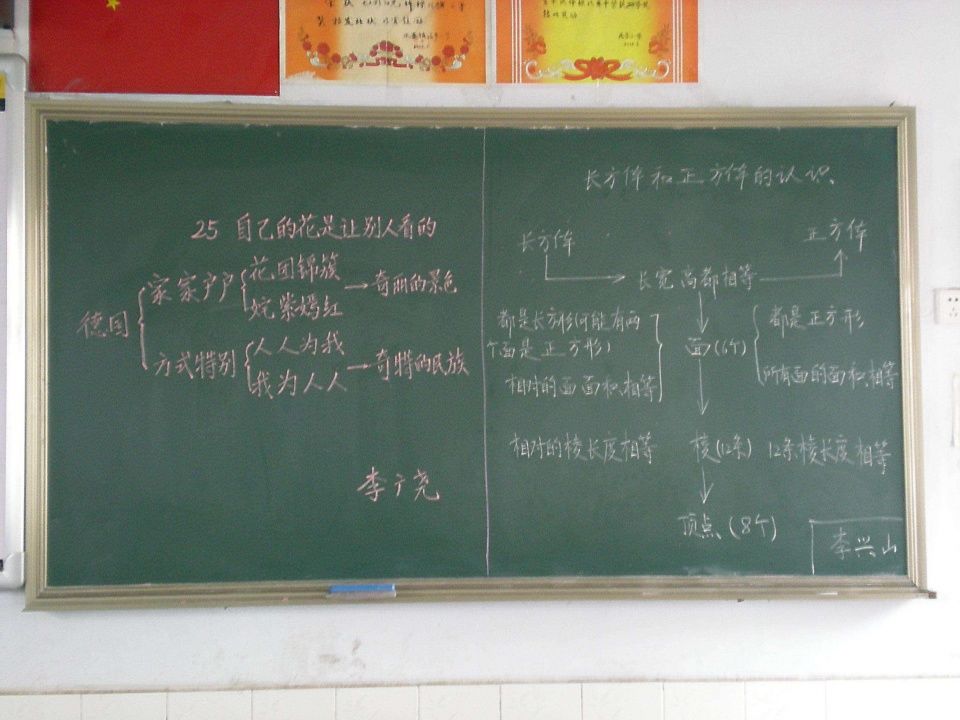 25 自己的花是让别人看的
德国
家家户户
花团锦簇
姹紫嫣红
奇丽的景色
方式特别
人人为我
我为人人
奇特的民族
李广尧
长方体和正方体的认识
长方体
正方体
长宽高都相等
都是长方形(可能有两
个面是正方形)
相对的面面积相等
面(6个)
都是正方形
所有面的面积相等
相对的棱长度相等
棱(12条)
12条棱长度相等
顶点(8个)
李兴山